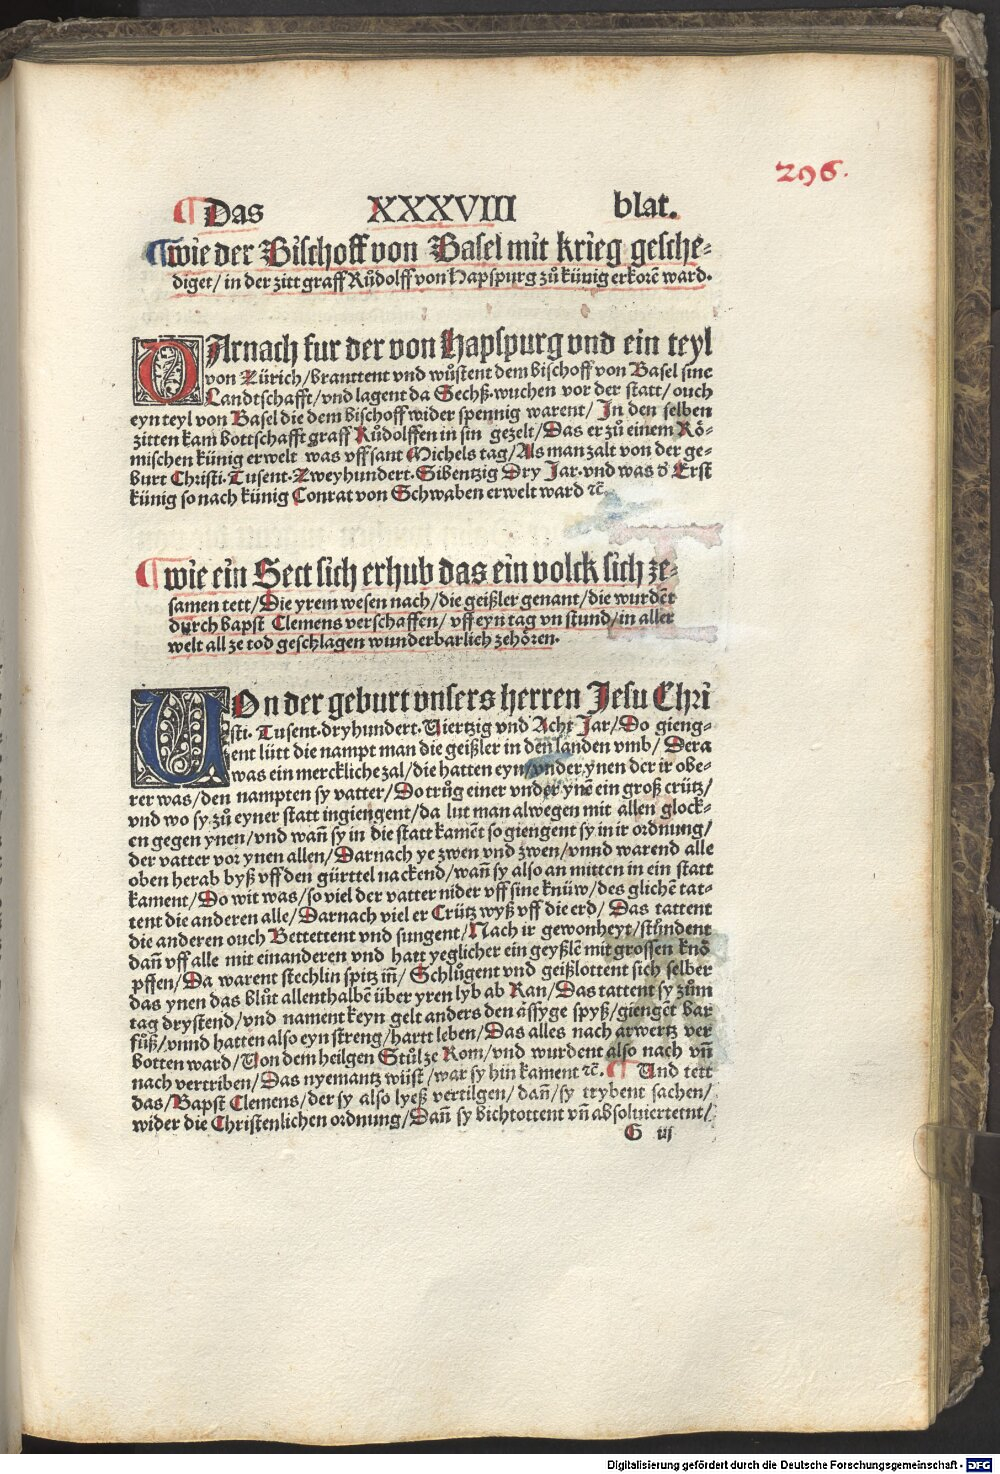 296.
¶ Das XXXVIII blat.
¶ wie der Bischoff von Basel mit krieg gesche-
diget/ in der zitt graff Růdolff von Hapspurg zů künig erkorē ward.
DArnach fur der von Hapspurg vnd ein teyl
von Zürich/branttent vnd wůstent dem bischoff von Basel sine
Landtschafft/vnd lagent da Sechß wuchen vor der statt/ ouch
eyn teyl von Basel die dem bischoff wider spennig warent/ In den selben
zitten kam bottschafft graff Růdolffen in sin gezelt/Das er zů einem Rö-
mischen künig erwelt was vff sant Michels tag/Als man zalt von der ge-
burt Christi. Tusent. Zweyhundert. Sibentzig Dry Jar. vnd was ð Erst
künig so nach künig Conrat von Schwaben erwelt ward ꝛc̄.
¶ wie ein Sect sich erhub das ein volck sich ze-
samen tett/Die yrem wesen nach/die geißler genant/die wurdēt
durch bapst Clemens verschaffen/ vff eyn tag vn stund/in aller
welt all ze tod geschlagen wunderbarlich zehören.
VOn der geburt vnsers herren Jesu Chri
sti. Tusent. dryhundert. Viertzig vnd Acht Jar/Do gieng-
ent lütt die nampt man die geißler in den landen vmb/ Dera
was ein merckliche zal/die hatten eyn/vnder ynen der ir obe-
rer was/den nampten sy vatter/Do trůg einer vnder ynē ein groß crütz/
vnd wo sy zů eyner statt ingiengent/da lut man alwegen mit allen glock-
en gegen ynen/vnd wañ sy in die statt kamēt so giengent sy in ir ordnung/
der vatter vor ynen allen/Darnach ye zwen vnd zwen/vnnd warend alle
oben herab byß vff den gürttel nackend/wañ sy also an mitten in ein statt
kament/Do wit was/so viel der vatter nider vff sine knüw/des glichē tat-
tent die anderen alle/Darnach viel er Crütz wyß vff die erd/ Das tattent
die anderen ouch Bettettent vnd sungent/Nach ir gewonheyt/stůndent
dañ vff alle mit einanderen vnd hatt yeglicher ein geyßlē mit grossen knö
pffen/Da warent stechlin spitz iñ/ Schlůgent vnd geißlottent sich selber
das ynen das blůt allenthalbē über yren lyb ab Ran/Das tattent sy zům
tag drystend/vnd nament keyn gelt anders den ässyge spyß/giengēt bar
fůß/vnnd hatten also eyn streng/hartt leben/Das alles nach arwertz ver
botten ward/Von dem heilgen Stůl ze Rom/vnd wurdent also nach vñ
nach vertriben/Das nyemantz wüst/war sy hin kament ꝛc̄. ¶ Und tett
das/Bapst Clemens/der sy also lyeß vertilgen/ dañ/sy trybent sachen/
wider die Christenlichen ordnung/Dañ sy bichtottent vñ absoluiertent/
G iij
Digitalisierung gefördert durch die Deutsche Forschungsgemeinschaft - DFG